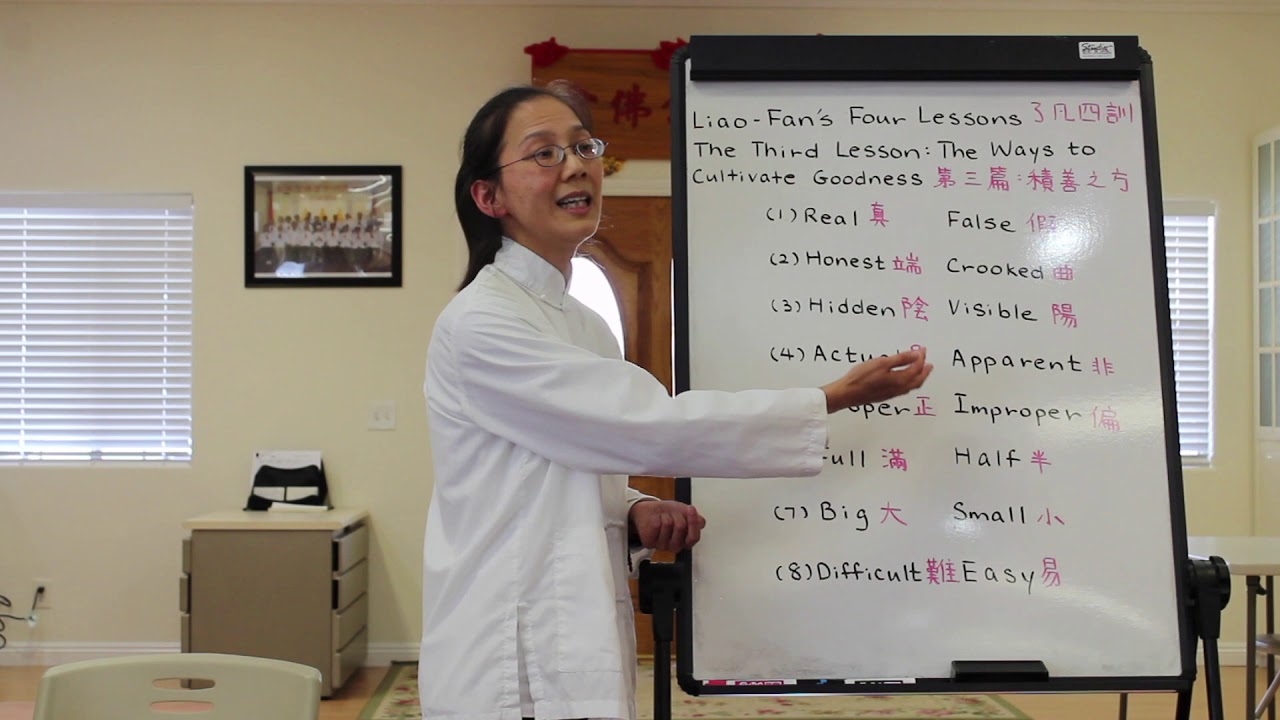 Liao-Fan's Four Lessons 了凡四訓
The Third Lesson: The Ways to
Cultivate Goodness 第三篇:積善之方
(1) Real 真 False 假
(2) Honest 端 Crooked 曲
(3) Hidden 陰 Visible 陽
(4) Apparent 非
正 Improper 偏
滿 Half 半
(7) Big 大 Small 小
(8) Difficult 難 Easy 易
佛